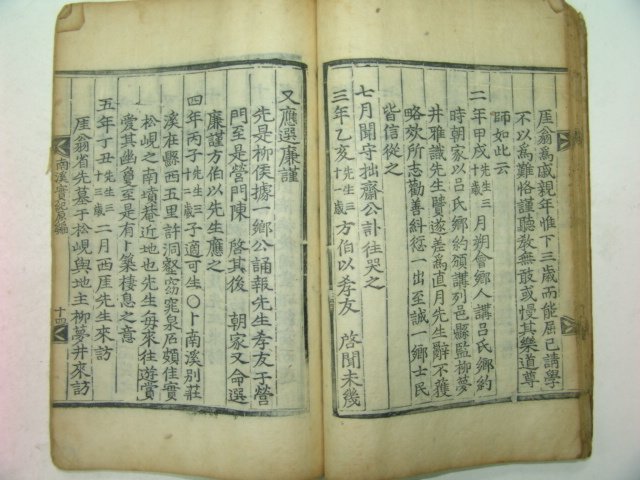 厓翁爲戚親年惟下三歲而能屈己請學
不以爲難恪謹聽敎無敢或慢其樂道尊
師如此云
二年甲戌先生三十歲三月朔會鄕人講呂氏鄕約
時朝家以呂氏鄕約頒講列邑縣監柳夢
井雅識先生賢遂差爲直月先生辭不獲
略效所志勸善糾愆一出至誠一鄕士民
皆信從之
七月聞守拙齋公訃往哭之
三年乙亥先生三十一歲方伯以孝友 啓聞未幾
又應選廉謹
先是柳侯據一鄕公誦報先生孝友于營
門至是營門陳 啓其後 朝家又命選
廉謹方伯以先生應之
四年丙子先生三十二歲子適可生○卜南溪別莊
溪在縣西五里許洞壑窈窕泉石頗佳實
松峴之南墳巷近地也先生每來往遊賞
愛其幽至是有卜築棲息之意
五年丁丑先生三十三歲二月西厓先生來訪
厓翁省先墓于松峴與地主柳夢井來訪
南溪實紀原編
十四